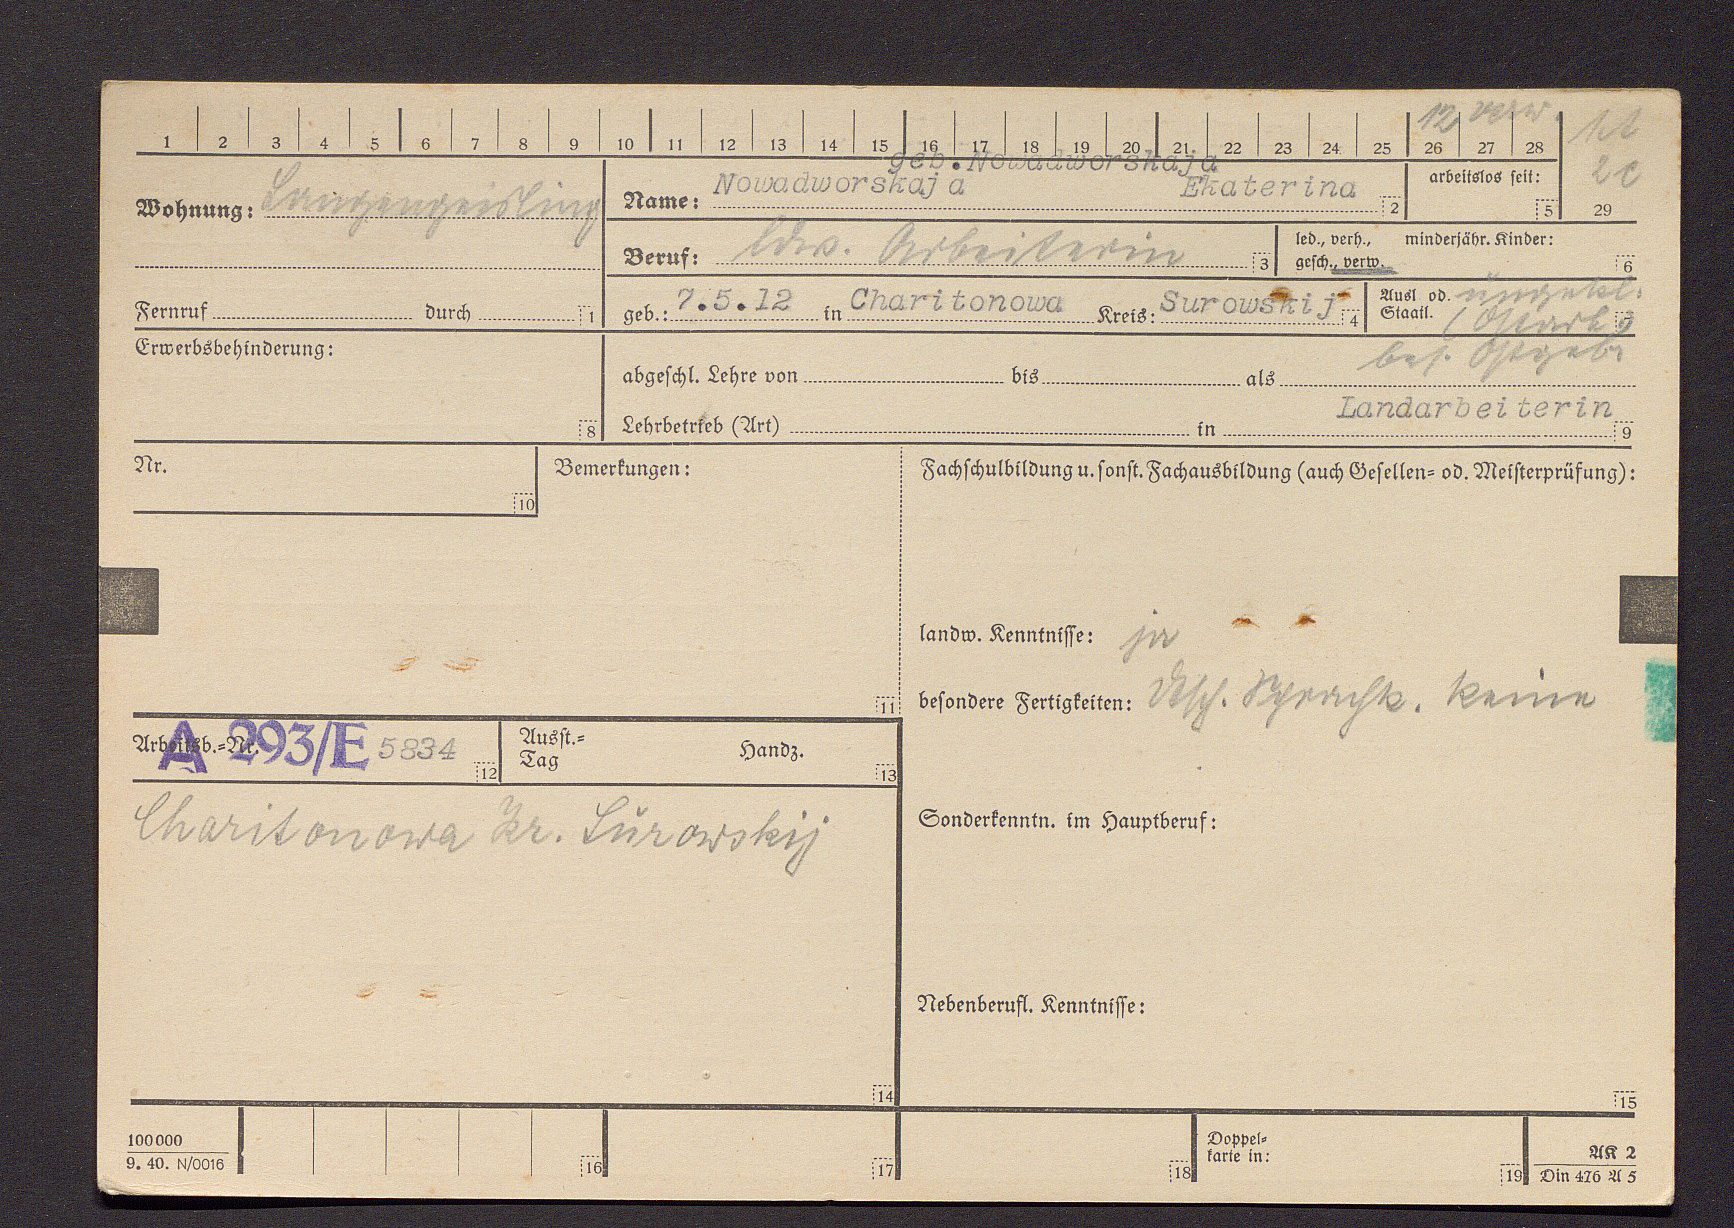 12 verw.
1 2 3 4 5 6 7 8 9 10 11 12 13 14 15 16 17 18 19 20 21 22 23 24 25 26 27 28
2c
29
geb. Nowadworskaja
Wohnung: Langengeisling
Name: Nowadworskaja Ekaterina 2
arbeitslos seit: 5
Beruf: ldw. Arbeiterin 3
led., verh., minderjähr. Kinder:
gesch., verw. 6
Fernruf durch 1
geb.: 7.5.12 in Charitonowa Kreis: Surowskij 4
Ausl od. ungekl.
Staatl. 7
Erwerbsbehinderung: 8
bes. Ostgeb.
abgeschl. Lehre von bis als
Landarbeiterin
Lehrbetrieb (Art) in 9
Nr. 10
Bemerkungen: 11
Fachschulbildung u. sonst. Fachausbildung (auch Gesellen- od. Meisterprüfung):
landw. Kenntnisse: ja
besondere Fertigkeiten: dtsch. Sprachk. keine
Arbeitsb.-Nr. A 293/E 5834 12
Ausst.-
Tag Handz. 13
Charitonowa Kr. Surowskij
14
Sonderkenntn. im Hauptberuf:
Nebenberufl. Kenntnisse:
15
100000
9. 40. N/0016
16 17 18
Doppel-
karte in: 19
AK 2
Din 476 A 5